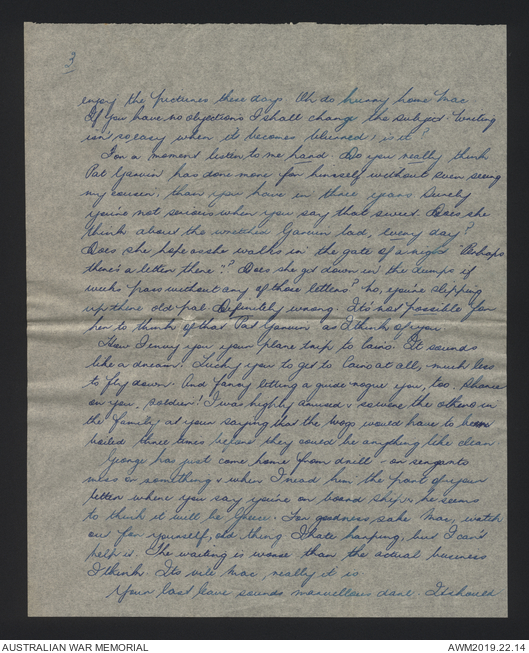 3
enjoy the pictures these days. Oh do hurry home Mac.
If you have no objections I shall change the subject. Writing
isn't so easy when it becomes blurred, is it?
For a moment listen to me hard. Do you really think
Pat Garvin has done more for himself without even seeing
my cousin, than you have in three years. Surely
you're not serious when you say that sweet. Does she
think about the wretched Garvin lad, every day?
Does she hope as she walks in the gate of a night "Perhaps
there's a letter there"? Does she get down in the dumps if
weeks pass without any of those letters? No, you're slipping
up there old pal. Definitely wrong. It's not possible for
her to think of that Pat Garvin as I think of you.
How I envy you your plane trip to Cairo. It sounds
like a dream. Lucky you to get to Cairo at all, much less
to fly down. And fancy letting a guide rogue you, too. Shame
on you, soldier! I was highly amused & so were the others in
the family at your saying that the wogs would have to be
boiled three times before they could be anything like clean
George has just come home from drill - or sergants
mess or something & when I read him the part of your
letter where you say you're on board ship, he seems
to think it will be Greece. For goodness sake Mac, watch
out for yourself, old thing I hate harping, but I can't
help it. The waiting is worse than the actual business
I think. It's vile Mac, really it is
Your last leave sounds marvellous darl. It should
AUSTRALIAN WAR MEMORIAL
AWM2019.22.14